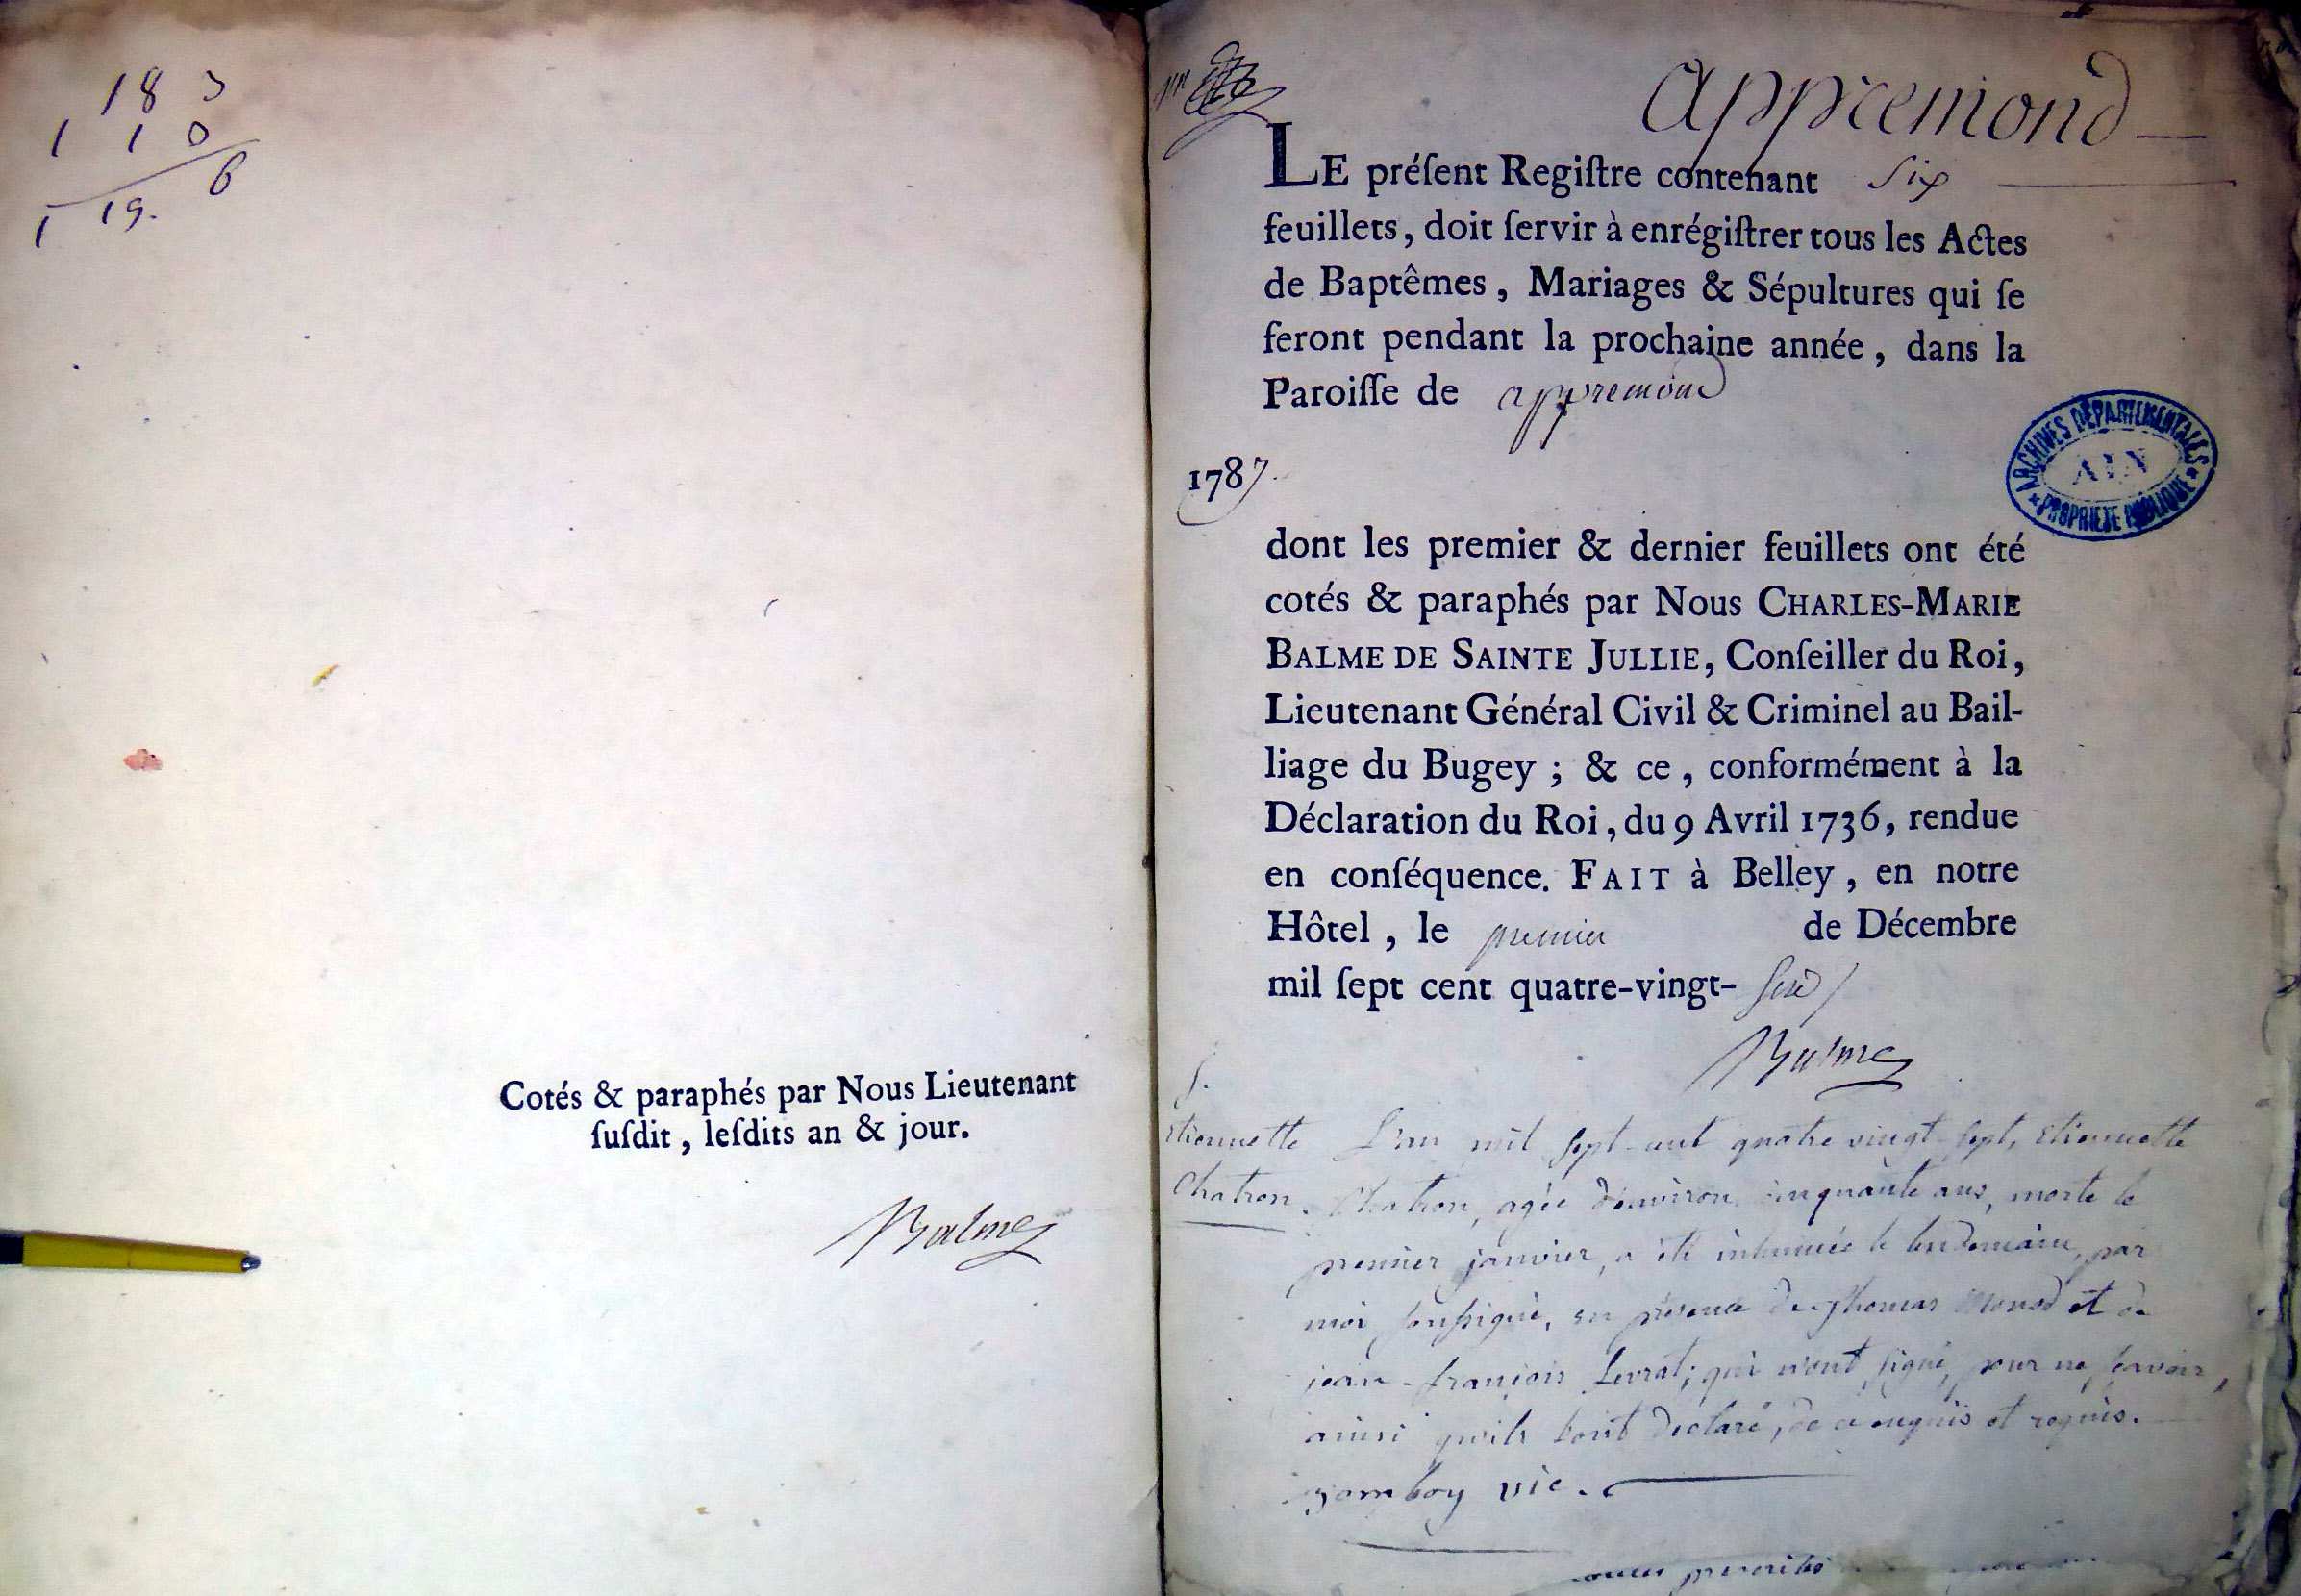 18 3
1 1 0
6
1 19.
Cotés & paraphés par Nous Lieutenant
ſuſdit, leſdits an & jour.
Balme
appremond
LE préſent Regiſtre contenant six
feuillets, doit ſervir à enrégiſtrer tous les Actes
de Baptêmes, Mariages & Sépultures qui ſe
feront pendant la prochaine année, dans la
Paroiſſe de appremond
1787.
ARCHIVES DÉPARTEMENTALES
AIN
PROPRIÉTÉ PUBLIQUE
dont les premier & dernier feuillets ont été
cotés & paraphés par Nous CHARLES-MARIE
BALME DE SAINTE JULLIE, Conſeiller du Roi,
Lieutenant Général Civil & Criminel au Bail-
liage du Bugey ; & ce, conformément à la
Déclaration du Roi, du 9 Avril 1736, rendue
en conſéquence. FAIT à Belley, en notre
Hôtel, le premier de Décembre
mil ſept cent quatre-vingt- six
Balme
S.
Etiennette
Chatron.
L'an mil sept-cent quatre vingt-sept, Etiennette
Chatron, agée d'environ cinquante ans, morte le
premier janvier, a été inhumée le lendemain, par
moi soussigné, en présence de Thomas Monod et de
jean-françois Levrat; qui n'ont signé, pour ne sçavoir,
ainsi qu'ils l'ont déclaré, de ce enquis et requis.
Jamboy vic.